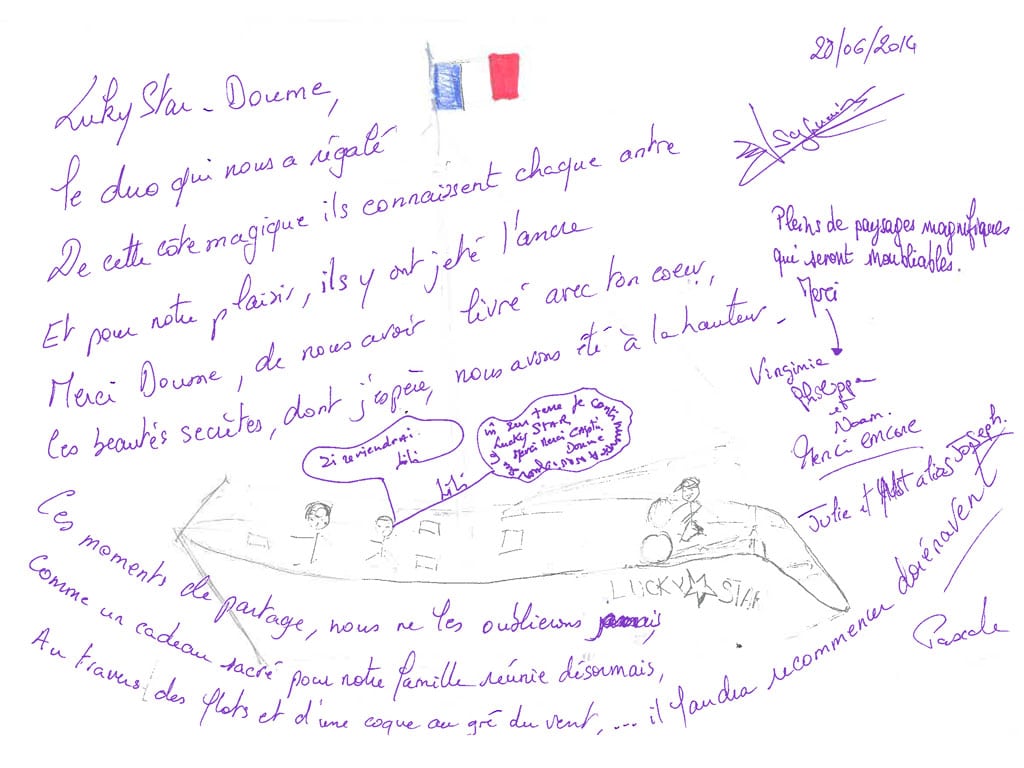 20/06/2014
Luky Star - Doume,
le duo qui nous a régalé
De cette côte magique ils connaissent chaque antre
Et pour notre plaisir, ils y ont jeté l'ancre
Merci Doume, de nous avoir livré avec ton coeur,
les beautés secrètes, dont j'espère, nous avons été à la hauteur -
Pleins de paysages magnifiques
qui seront inoubliables.
Merci
Virginie
Philippe
et
Noam.
Merci encore
Julie et alias Joseph.
Pascale
Lili
Lili
Lucky STAR
merci
Doume
LUCKY STAR
Ces moments de partage, nous ne les oublierons jamais,
Comme un cadeau sacré pour notre famille réunie désormais,
Au travers des flots et d'une coque au gré du vent, ... il faudra recommencer dorénavent